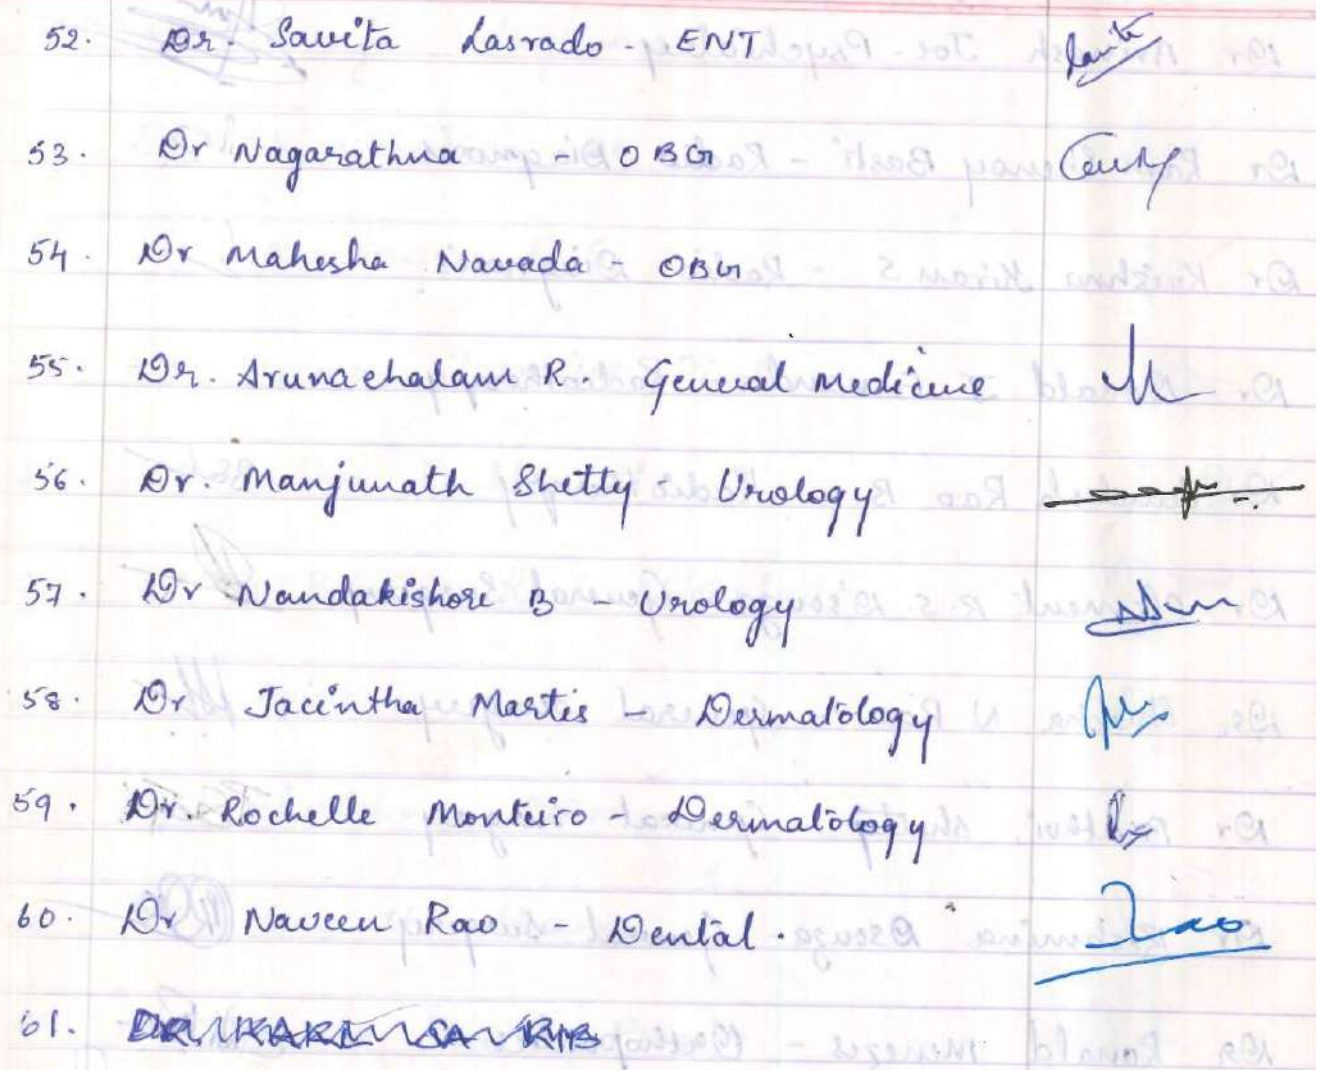 52. Dr. Savita Lasrado - ENT
53. Dr Nagarathna - OBG
54. Dr Mahesha Navada - OBG
55. Dr. Arunachalam R. General Medicine
56. Dr. Manjunath Shetty - Urology
57. Dr Nandakishore B - Urology
58. Dr Jacintha Martis - Dermatology
59. Dr. Rochelle Monteiro - Dermatology
60. Dr Naveen Rao - Dental. Rao
61. DR.